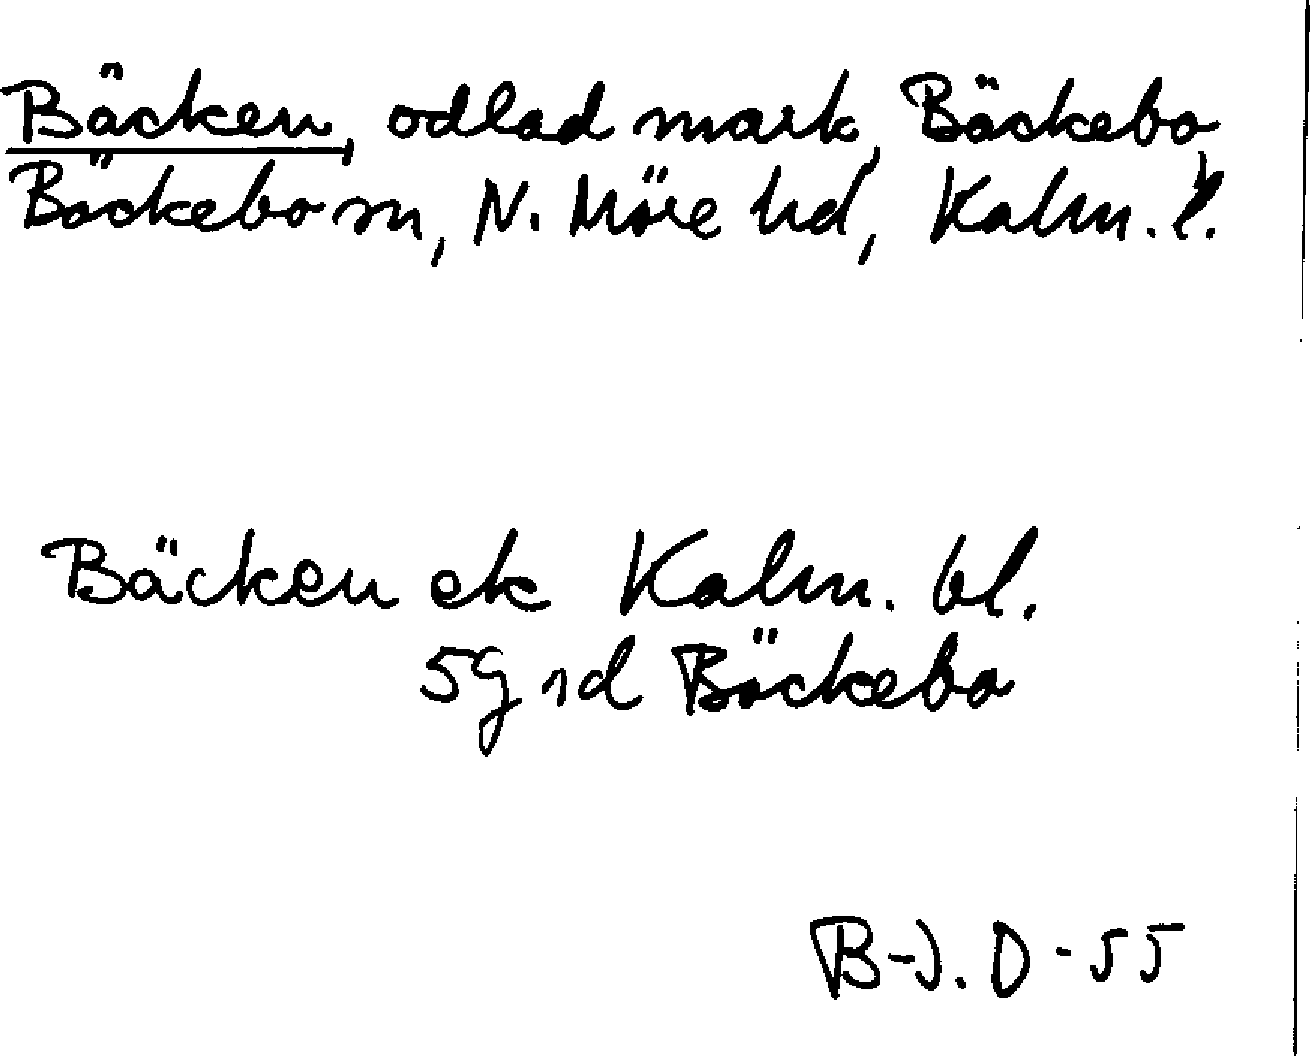 Bäcken, odlad mark, Bäckebo,
Bäckebo sn, N. Möre hd, Kalm. l.
Bäcken ek Kalm. bl.
5g rd Bäckebo
B-J. D - 55